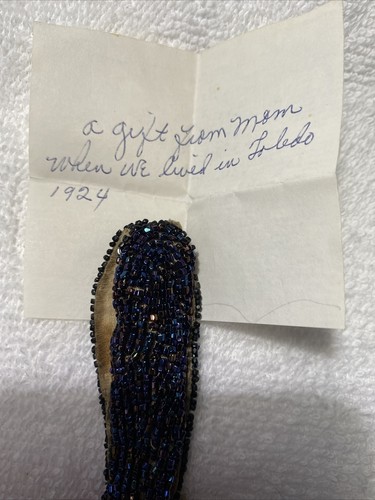 a gift from Mom
when we lived in Toledo
1924